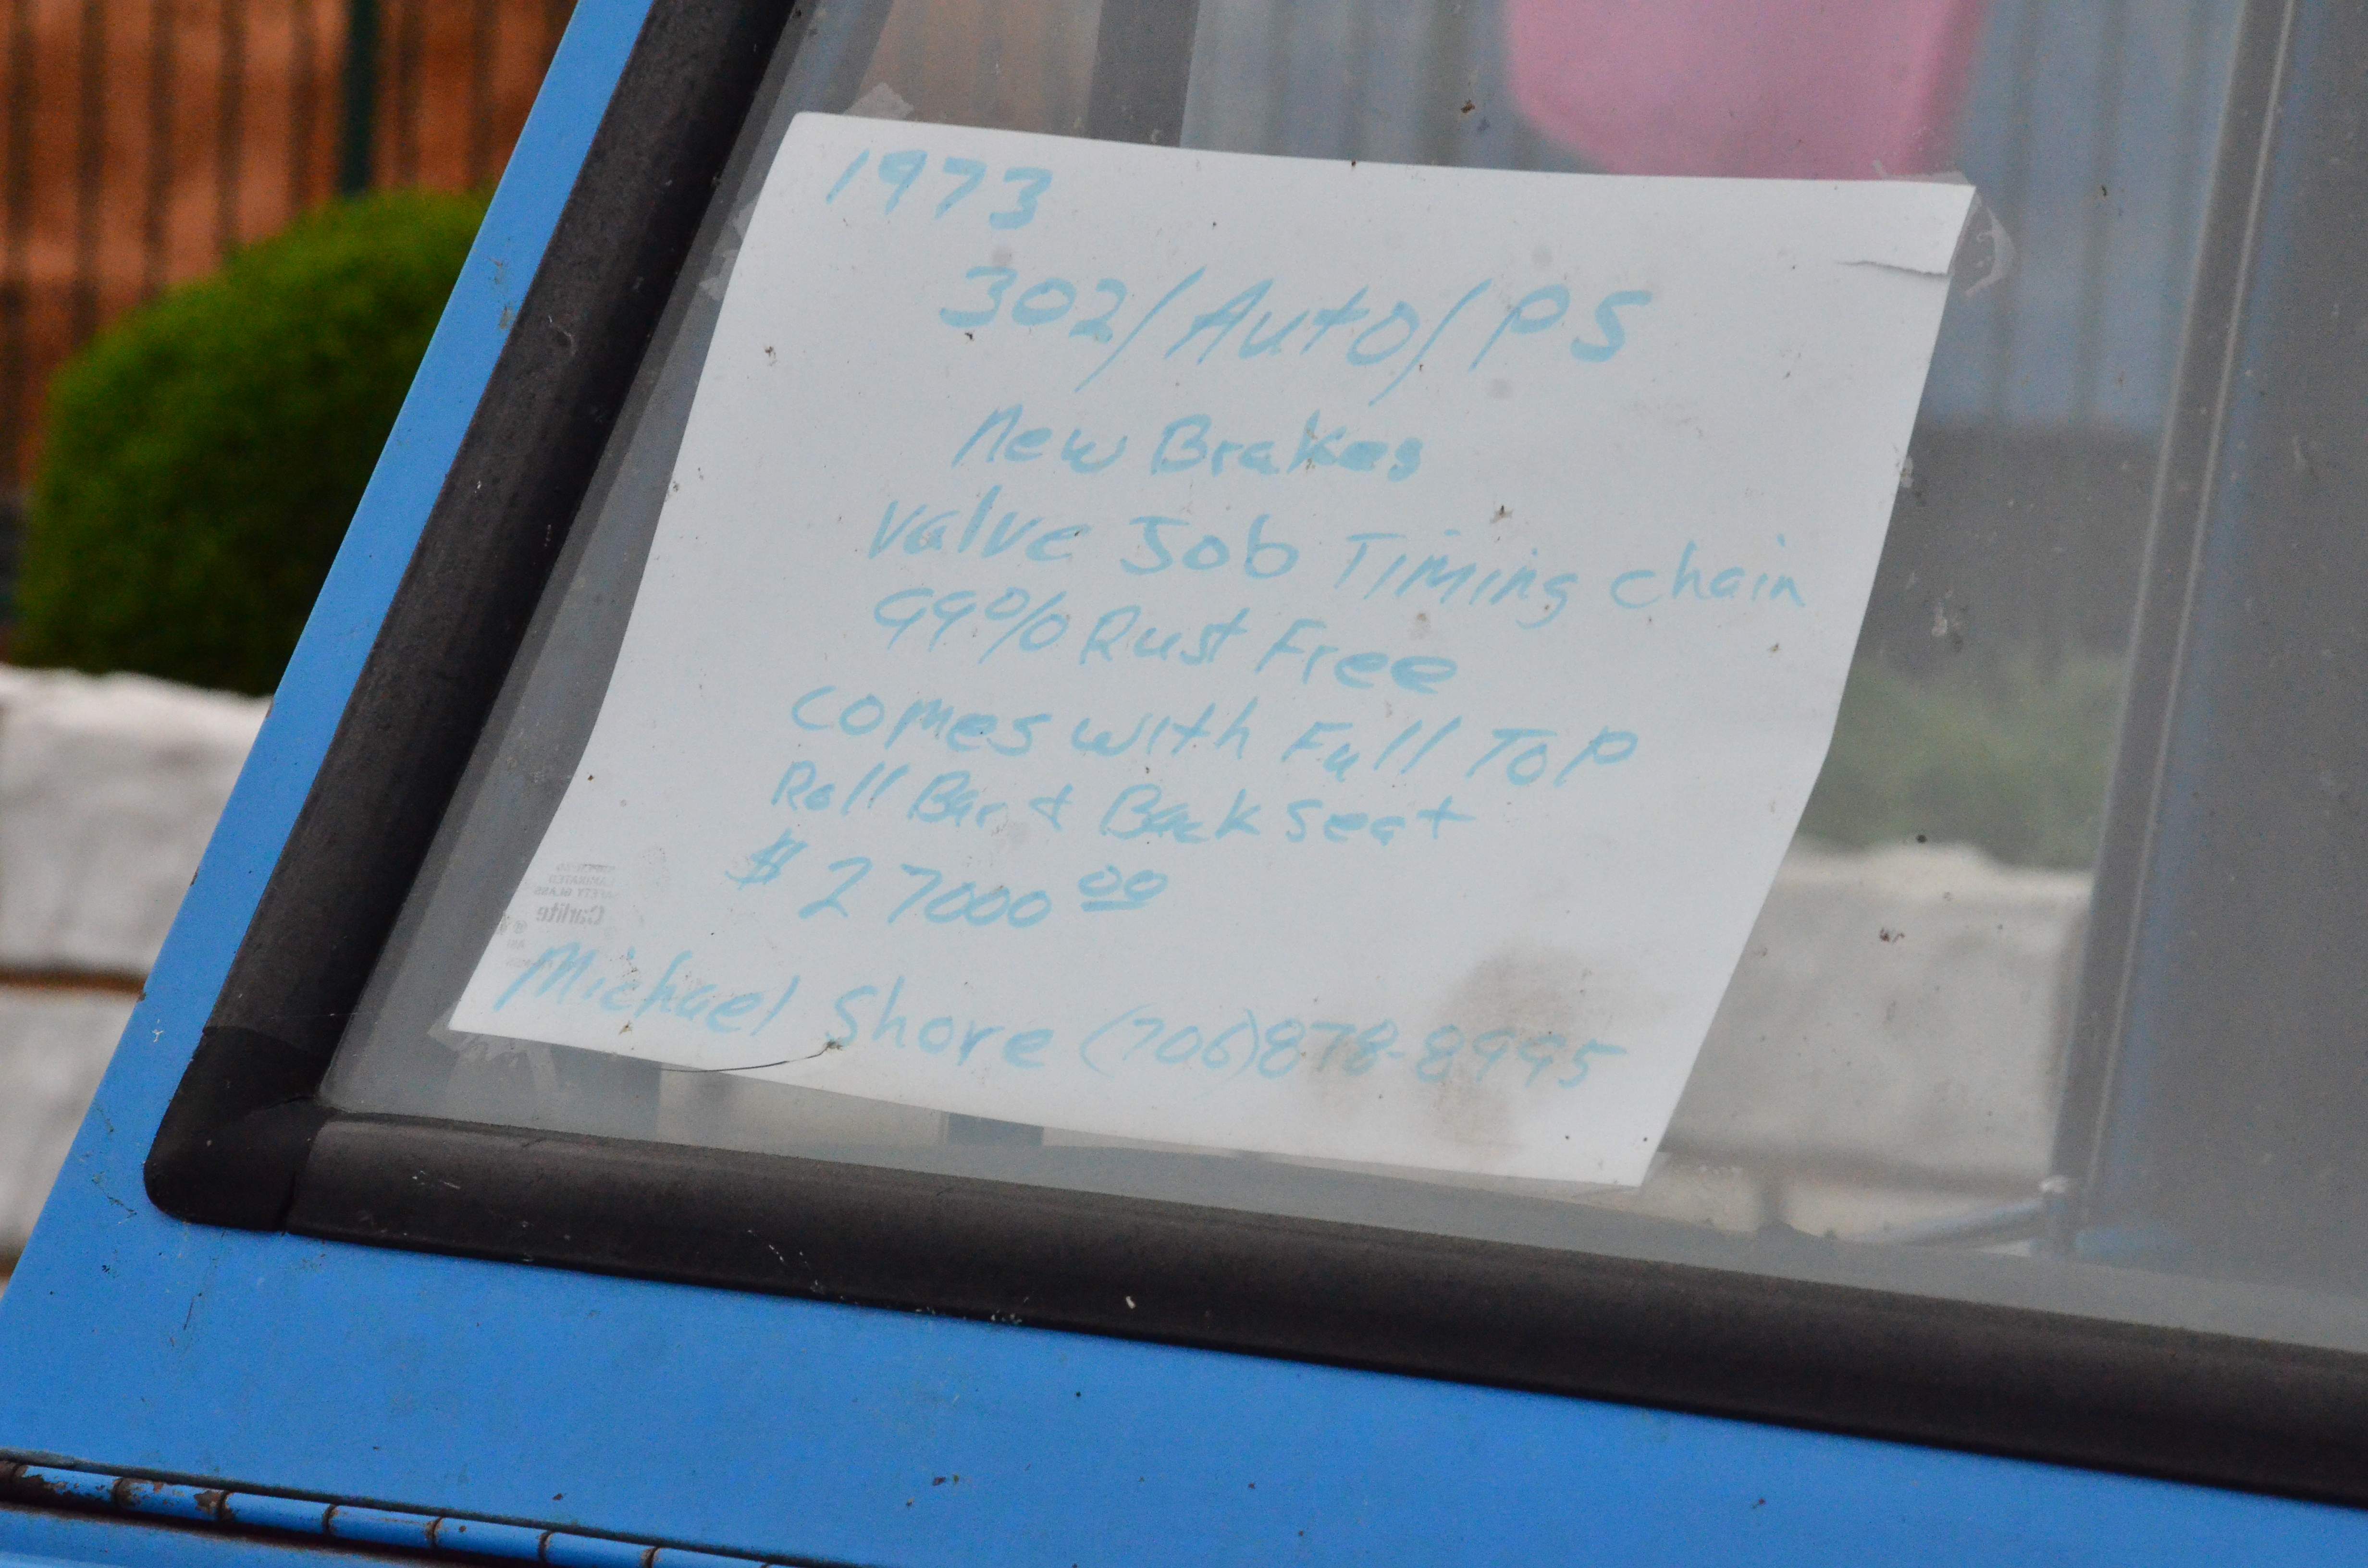 1973
302/Auto/PS
New Brakes
valve Job Timing chain
99% Rust Free
comes with Full Top
Roll Bar & Back seat
$27000 00
Michael Shore (706)878-8995
LAMINATED
SAFETY GLASS
Carlite